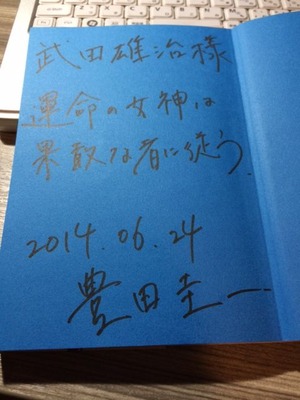 武田雄治様
運命の女神は
果敢な者に従う.
2014.06.24
豊田圭一